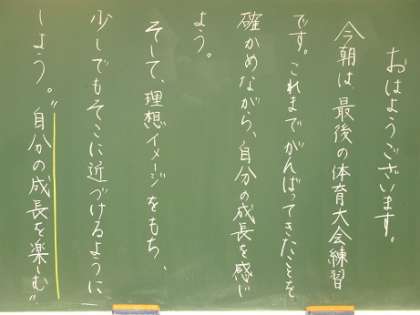 おはようございます。
今朝は、最後の体育大会練習
です。これまでがんばってきたことを
確かめながら、自分の成長を感じ
よう。
そして、理想イメージをもち、
少しでもそこに近づけるように
しよう。〝自分の成長を楽しむ〟